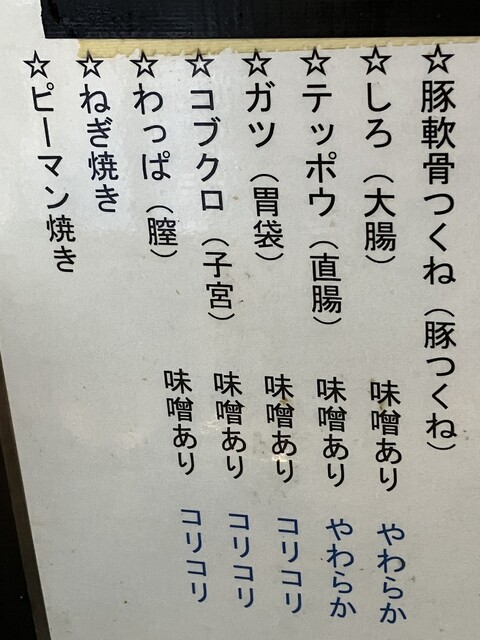 ☆豚軟骨つくね（豚つくね）
☆しろ（大腸） 味噌あり やわらか
☆テッポウ（直腸） 味噌あり やわらか
☆ガツ（胃袋） 味噌あり コリコリ
☆コブクロ（子宮） 味噌あり コリコリ
☆わっぱ（膣） 味噌あり コリコリ
☆ねぎ焼き
☆ピーマン焼き